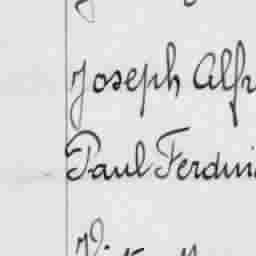 Joseph Alfr
Paul Ferdin